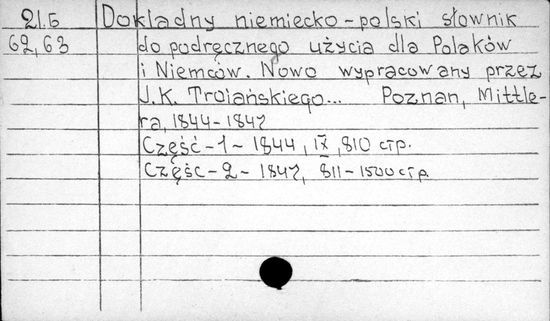 21.Б Dokładny niemiecko-polski słownik
62,63 do podręcznego użycia dla Polaków
i Niemców. Nowo wypracowany przez
J.K. Troiańskiego... Poznan, Mittle-
ra, 1844-1847
Część-1- 1844, IX, 810 стр.
Częśc-2- 1847, 811-1500 стр.